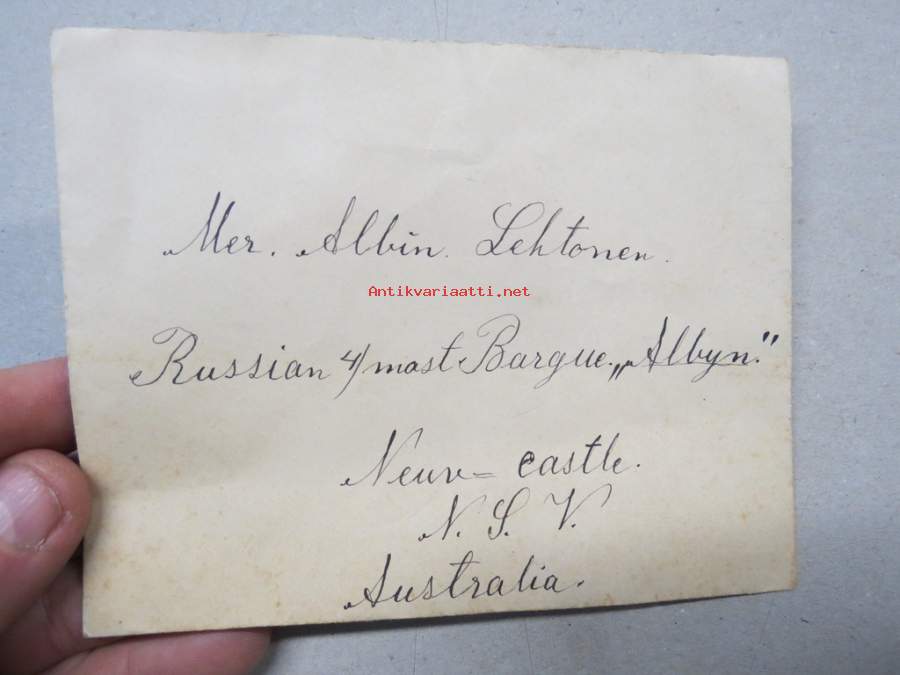 Mer. Albin. Lehtonen.
Antikvariaatti.net
Russian 4/mast Barque. „Albyn."
Neuv=castle.
N. S. V.
Australia.